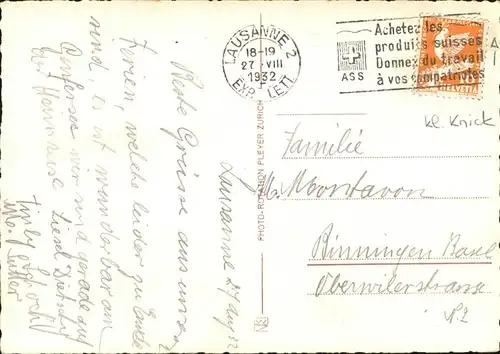 LAUSANNE 2
18-19
27 VIII
1932
EXP. LETT.
ASS
Achetez les
produits suisses
Donnez du travail
à vos compatriotes
HELVETIA
kl. Knick
Familie
M. Montavon
Binningen Basel
Oberwilerstrasse
PHOTO-ROTATION PLEYER ZURICH
Lausanne 27 Aug 32
Beste Grüsse aus unsern
Ferien, welche leider zu Ende
sind, es ist wunderbar am
wir sind gerade auf
der Heimreise